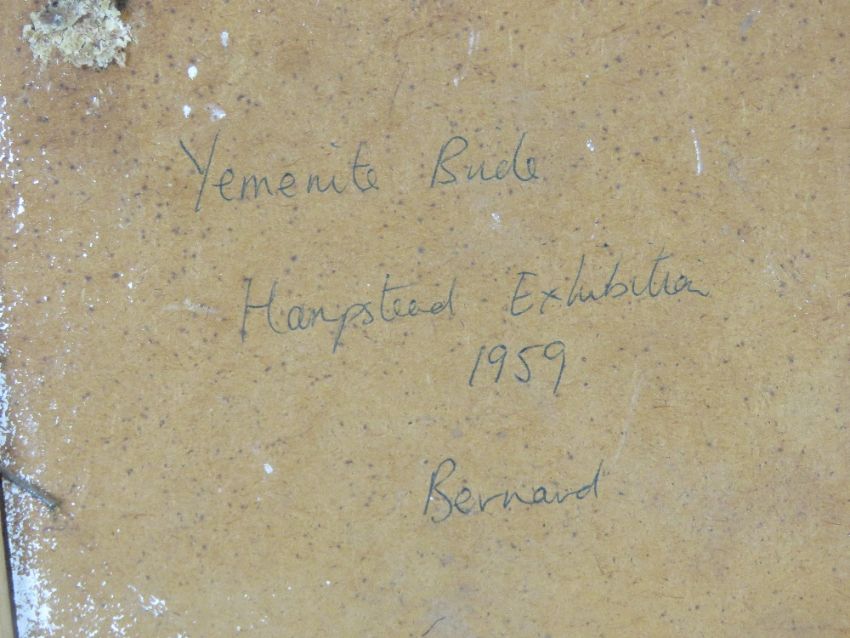 Yemenite Bride
Hampstead Exhibition
1959
Bernard